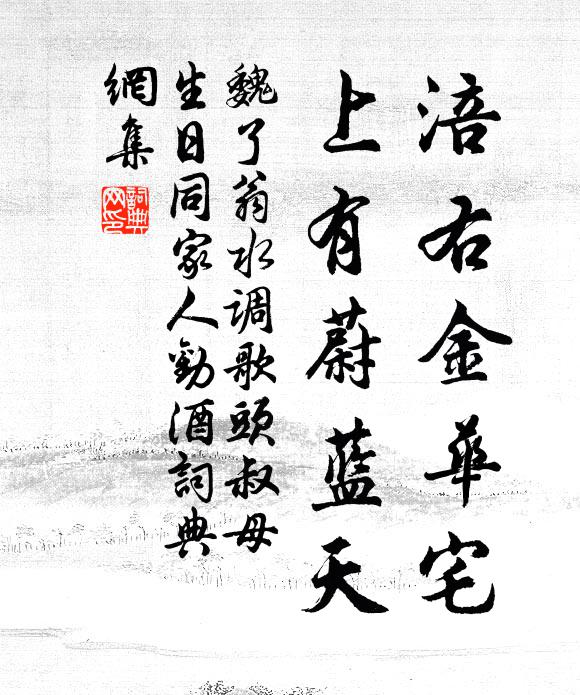 涪右金華宅
上有蔚藍天
魏了翁水調歌頭叔母
生日同家人勸酒詞典
網集
詞典
网印